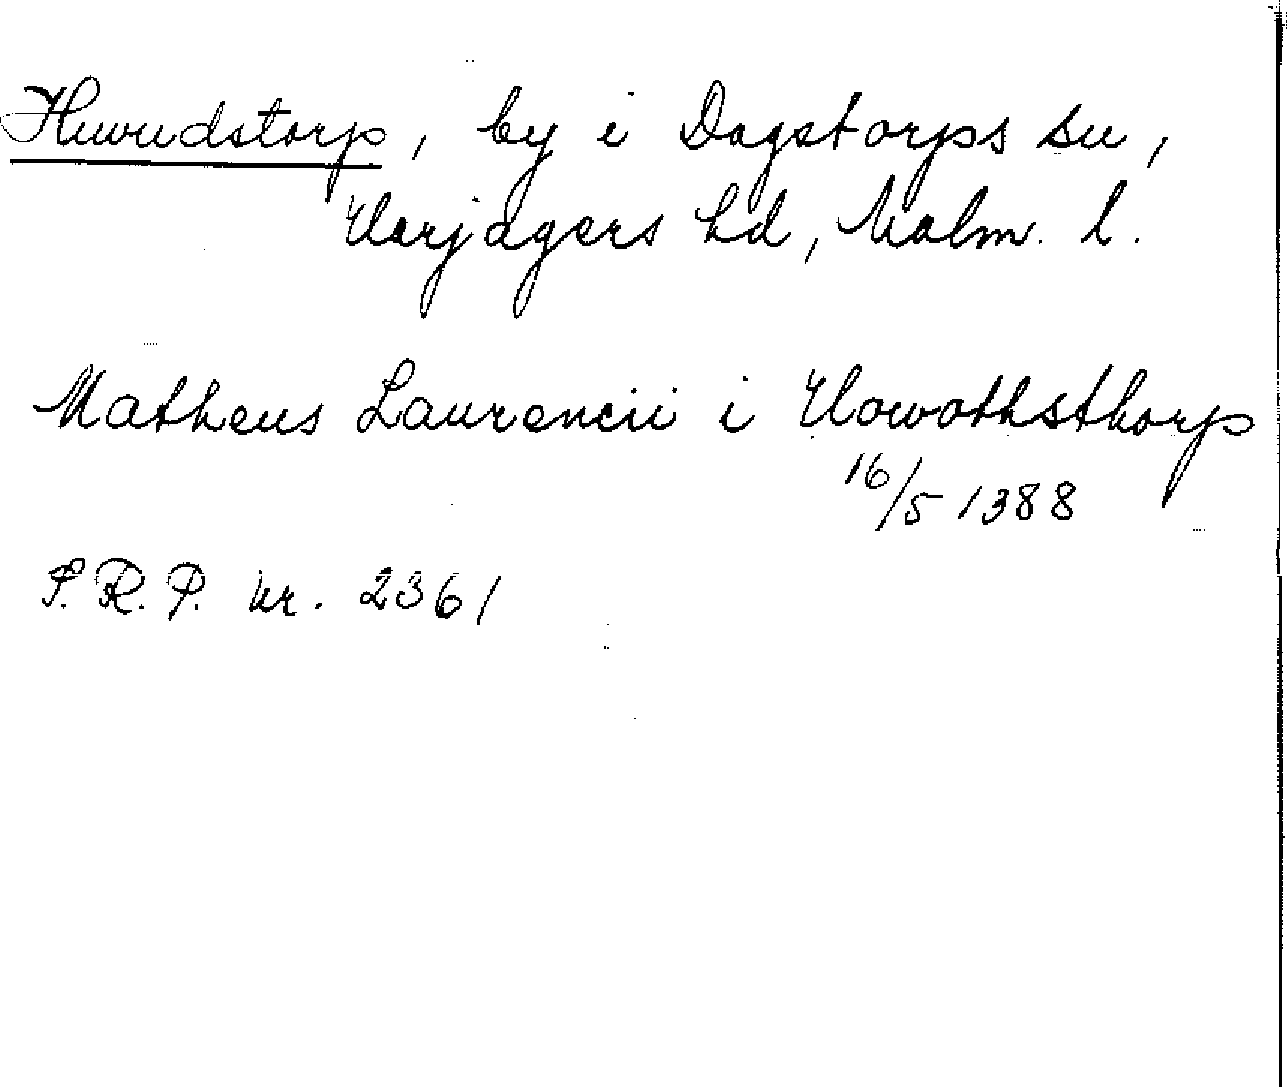 Huvudstorp, by i Dagstorps sn,
Harjagers hd, Malm. l.
Matheus Laurencii i Howothsthorp
16/5 1388
S.R.P. nr. 2361